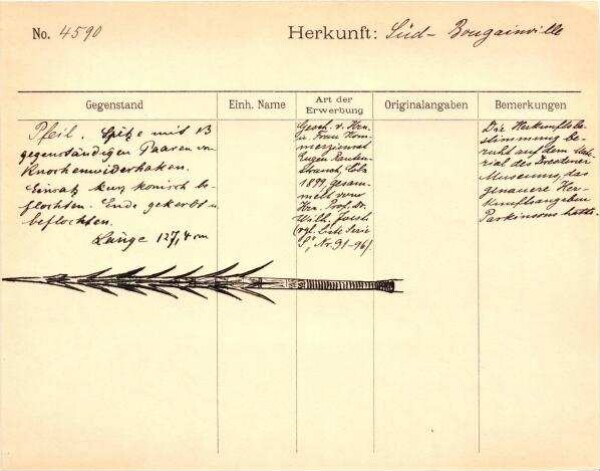 No. 4590
Herkunft: Süd-Bougainville
Gegenstand
Einh. Name
Art der Erwerbung
Originalangaben
Bemerkungen
Pfeil. Spitze mit 13
gegenständigen Paaren von
Knochenwiderhaken.
Einsatz kurz konisch be-
flochten. Ende gekerbt u.
beflochten.
Länge 127,4 cm
Gesch. v. Hrn.
u. Frau Kom-
merzienrat
Eugen Rauten-
strauch, Cöln
1899, gesam-
melt von
Hrn. Prof. Dr.
Wilh. Joest
(vgl. Serie
S, Nr. 91-96).
Die Herkunftsbe-
stimmung be-
ruht auf dem Mate-
rial des Dresdener
Museums, das
genauere Her-
kunftsangaben
Parkinsons hatte.